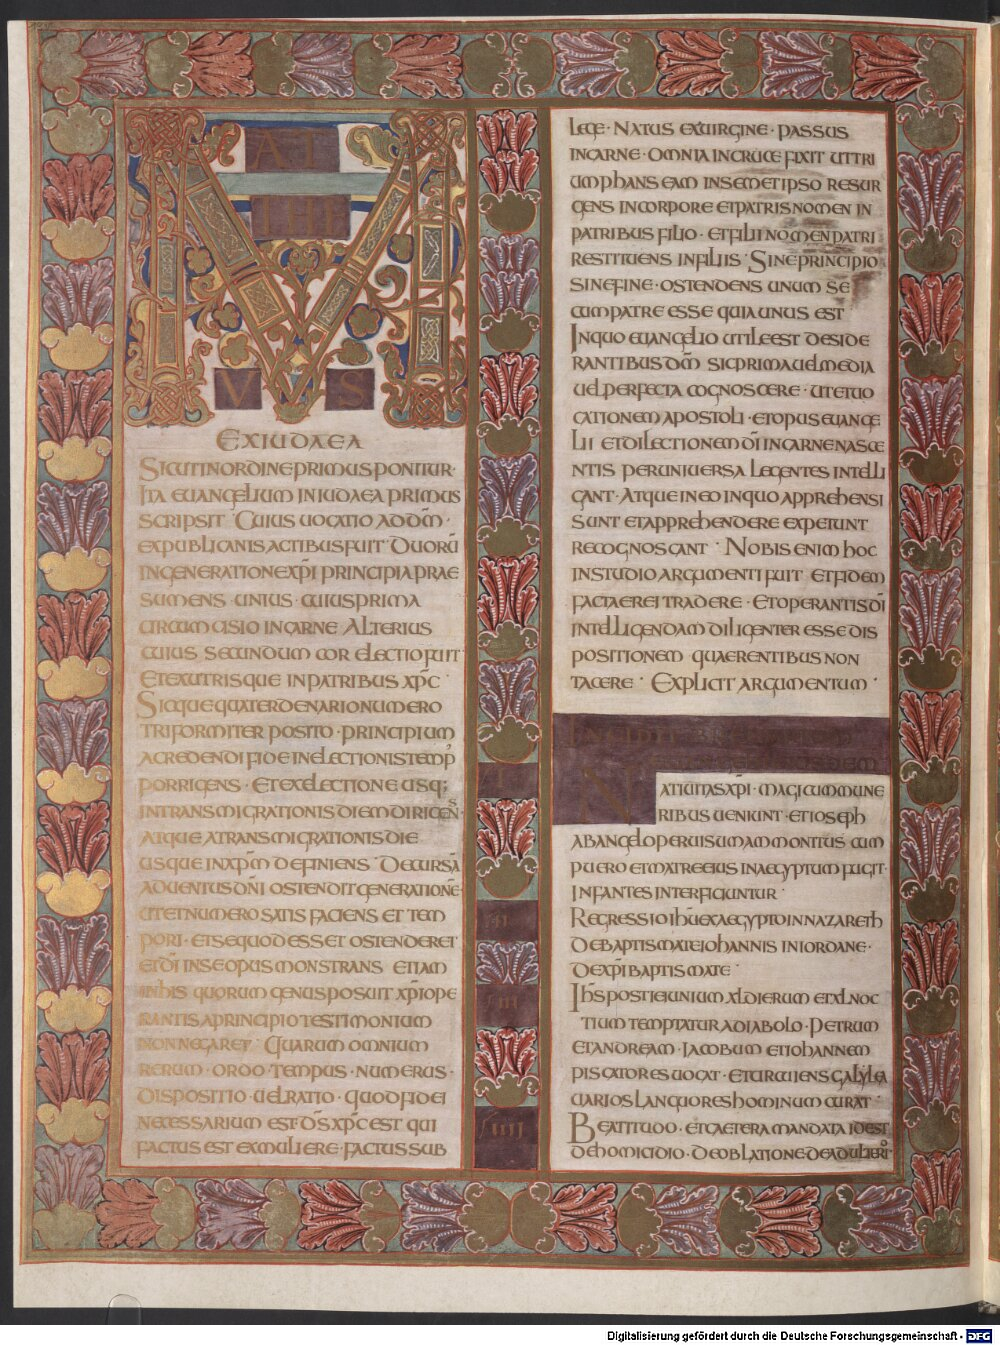 MATTHEVS
EXIUDAEA
SICUTINORDINEPRIMUSPONITUR·
ITA EUANGELIUM INIUDAEA PRIMUS
SCRIPSIT· CUIUS UOCATIO ADDM̅·
EXPUBLICANIS ACTIBUSFUIT· DUORŪ
INGENERATIONEXP̅I PRINCIPIA PRAE
SUMENS· UNIUS· CUIUSPRIMA
CIRCUMCISIO INCARNE ALTERIUS
CUIUS SECUNDUM COR ELECTIOFUIT
ETEXUTRISQUE INPATRIBUS XP̅C·
SICQUEQUATERDENARIONUMERO
TRIFORMITER POSITO· PRINCIPIUM
ACREDENDI FIDE INELECTIONISTEMP̉
PORRIGENS· ETEXELECTIONE USQ;
INTRANSMIGRATIONISDIEMDIRIGENS·
ATQUE ATRANSMIGRATIONISDIE
USQUE INXP̅M DEFINIENS· DECURSĀ
ADUENTUSDN̅I OSTENDITGENERATIONĒ·
UTETNUMERO SATIS FACIENS ET TEM
PORI· ETSEQUODESSET OSTENDERET
ETDĪ INSEOPUSMONSTRANS ETIAM
INHIS QUORUM GENUSPOSUIT XP̅IOPE
RANTIS APRINCIPIOTESTIMONIUM
NONNEGARET· QUARUM OMNIUM
RERUM· ORDO· TEMPUS· NUMERUS·
DISPOSITIO· UELRATIO· QUODFIDEI
NECESSARIUM EST· DS̅XP̅CEST QUI
FACTUS EST EXMULIERE· FACTUSSUB
I
II
III
IIII
LEGE· NATUS EXUIRGINE· PASSUS
INCARNE· OMNIA INCRUCE FIXIT UTTRI
UMPHANS EAM INSEMETIPSO RESUR
GENS INCORPORE ETPATRISNOMEN IN
PATRIBUS FILIO· ETFILII NOMENPATRI
RESTITUENS INFILIIS· SINEPRINCIPIO
SINEFINE· OSTENDENS UNUM SE
CUMPATRE ESSE QUIAUNUS EST
INQUO EUANGELIO UTILEEST DESIDE
RANTIBUS DM̅ SICPRIMAUELMEDIA
UELPERFECTA COGNOSCERE· UTETUO
CATIONEM APOSTOLI· ETOPUS EUANGE
LII ETDILECTIONEM DĪ INCARNENASCE
NTIS PERUNIUERSA LEGENTES INTELLI
GANT· ATQUE INEO INQUO APPREHENSI
SUNT ETAPPREHENDERE EXPETUNT
RECOGNOSCANT· NOBIS ENIM HOC
INSTUDIO ARGUMENTI FUIT ETFIDEM
FACTAEREI TRADERE· ETOPERANTISDĪ
INTELLIGENDAM DILIGENTER ESSE DIS
POSITIONEM QUAERENTIBUS NON
TACERE· EXPLICIT ARGUMENTUM·
INCIPIT BREUIARIUM
NATIUITASXP̅I· MAGI CUMMUNE
RIBUS UENIUNT· ETIOSEPH
ABANGELOPERUISUMAMMONITUS CUM
PUERO ETMATREEIUS INAEGYPTUM FUGIT·
INFANTES INTERFICIUNTUR·
REGRESSIO IHU̅EXAEGYPTOINNAZARETH
DEBAPTISMATEIOHANNIS INIORDANE·
DEXP̅I BAPTISMATE·
IHS̅POSTIEIUNIUM XLDIERUM ETXLNOC
TIUM TEMPTATUR ADIABOLO· PETRUM
ETANDREAM· IACOBUM ETIOHANNEM
PISCATORES UOCAT· ETCIRCUIENS GALYLEA
UARIOS LANGUORESHOMINUM CURAT·
BEATITUDO· ETCAETERA MANDATA IDEST
DEHOMICIDIO· DEOBLATIONE·DEADULTERIO·
Digitalisierung gefördert durch die Deutsche Forschungsgemeinschaft - DFG